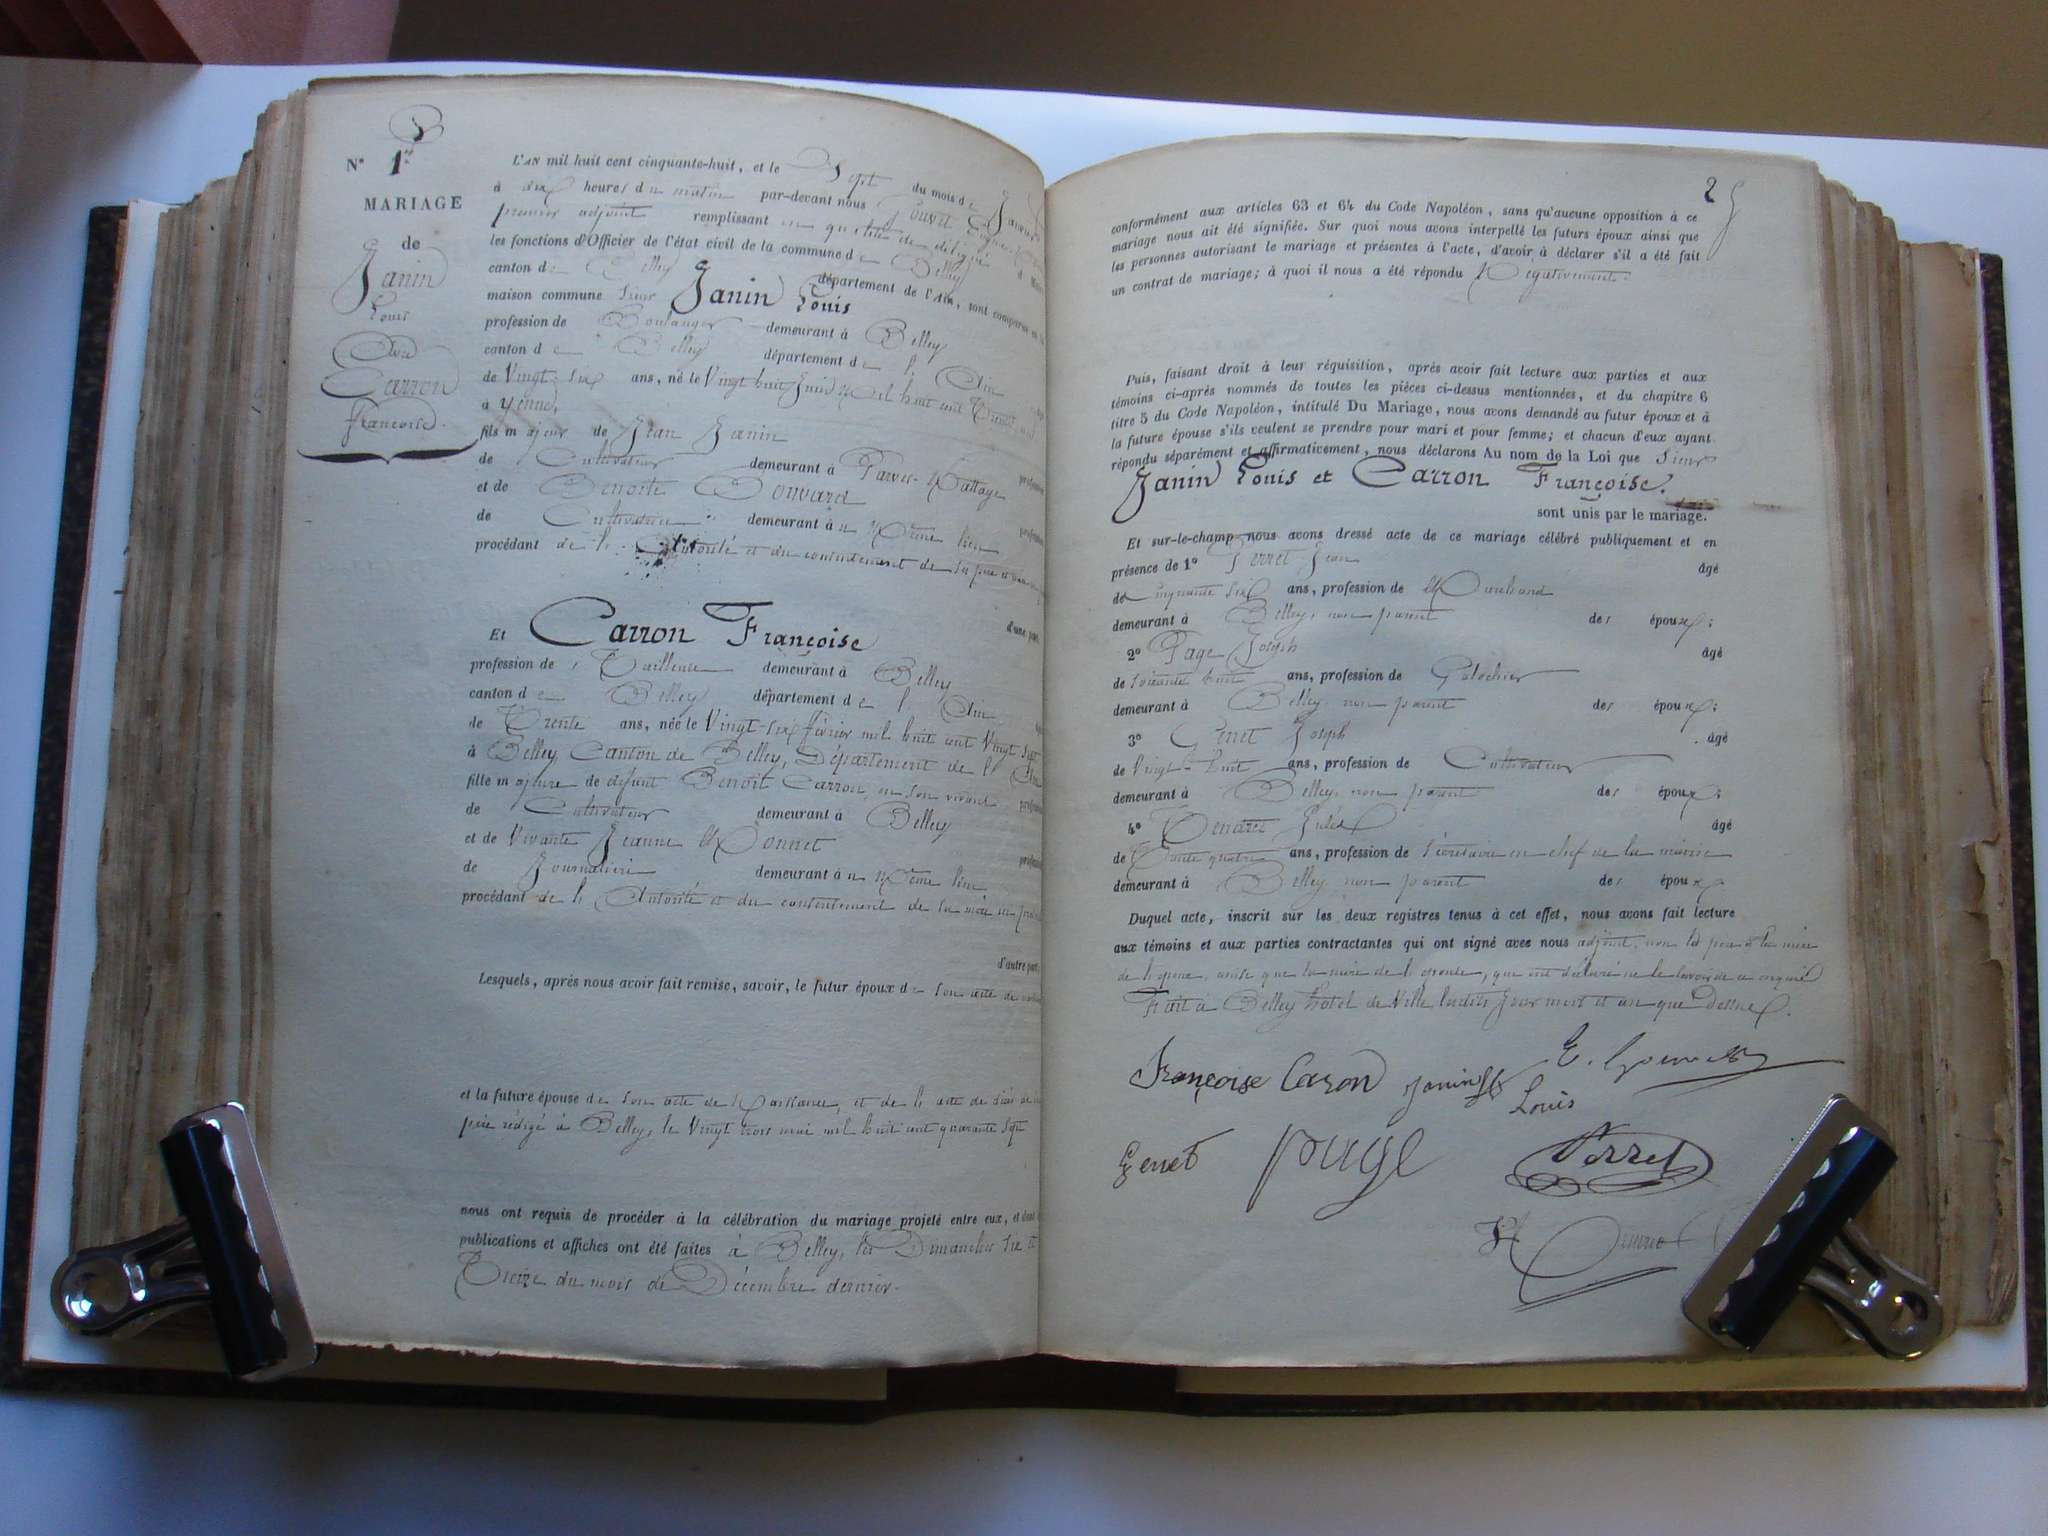 N° 1er
MARIAGE
de
Janin
Louis
Avec
Carron
Françoise.
L'AN mil huit cent cinquante-huit, et le Sept du mois de Janvier
à dix heures du matin par-devant nous
premier adjoint remplissant en qualité de délégué
les fonctions d'Officier de l'état civil de la commune de Belley
canton de Belley département de l'Ain, sont comparus en la
maison commune Sieur Janin Louis
profession de Boulanger demeurant à Belley
canton de Belley département de l'Ain
de Vingt-six ans, né le Vingt huit Juin Mil huit cent Trente un
à Yenne,
fils majeur de Jean Janin
de Cultivateur demeurant à Parves-Nattage profession
et de Benoite Bouvard
de Cultivatrice demeurant au Même lieu profession
procédant de l'Autorité et du consentement de ses père et mère
d'une part,
Et Carron Françoise
profession de Tailleuse demeurant à Belley
canton de Belley département de l'Ain
de Trente ans, née le Vingt-six février mil huit cent Vingt Sept
à Belley, Canton de Belley, Département de l'Ain
fille majeure de défunt Benoit Carron, en son vivant profession
de Cultivateur demeurant à Belley
et de Vivante Jeanne Monnet
de Journalière demeurant au Même lieu profession
procédant de l'Autorité et du consentement de sa mère ici
d'autre part;
Lesquels, après nous avoir fait remise, savoir, le futur époux de son acte de
et la future épouse de son acte de Naissance, et de l'acte de décès de
père rédigé à Belley, le Vingt trois mai mil huit cent quarante Sept
nous ont requis de procéder à la célébration du mariage projeté entre eux, et dont
publications et affiches ont été faites à Belley, les Dimanches Six et
Treize du mois de Décembre dernier.
2
conformément aux articles 63 et 64 du Code Napoléon, sans qu'aucune opposition à ce
mariage nous ait été signifiée. Sur quoi nous avons interpellé les futurs époux ainsi que
les personnes autorisant le mariage et présentes à l'acte, d'avoir à déclarer s'il a été fait
un contrat de mariage; à quoi il nous a été répondu Négativement.
Puis, faisant droit à leur réquisition, après avoir fait lecture aux parties et aux
témoins ci-après nommés de toutes les pièces ci-dessus mentionnées, et du chapitre 6
titre 5 du Code Napoléon, intitulé Du Mariage, nous avons demandé au futur époux et à
la future épouse s'ils veulent se prendre pour mari et pour femme; et chacun d'eux ayant
répondu séparément et affirmativement, nous déclarons Au nom de la Loi que Sieur
Janin Louis et Carron Françoise.
sont unis par le mariage.
Et sur-le-champ nous avons dressé acte de ce mariage célébré publiquement et en
présence de 1° Perret Jean âgé
de Cinquante six ans, profession de Marchand
demeurant à Belley, non parent des époux;
2° Page Joseph âgé
de soixante huit ans, profession de Galochier
demeurant à Belley, non parent des époux;
3° Genet Joseph âgé
de Vingt-huit ans, profession de Cultivateur
demeurant à Belley, non parent des époux;
4° Tendret âgé
de Trente quatre ans, profession de Secrétaire en chef de la mairie
demeurant à Belley non parent des époux
Duquel acte, inscrit sur les deux registres tenus à cet effet, nous avons fait lecture
aux témoins et aux parties contractantes qui ont signé avec nous adjoint, non les père & la mère
de l'époux, ainsi que la mère de l'épouse, qui ont déclaré ne le savoir de ce enquis
Fait à Belley hôtel de Ville lesdits jour mois et an que Dessus.
Françoise Caron Janin
Louis
Genet page Perret